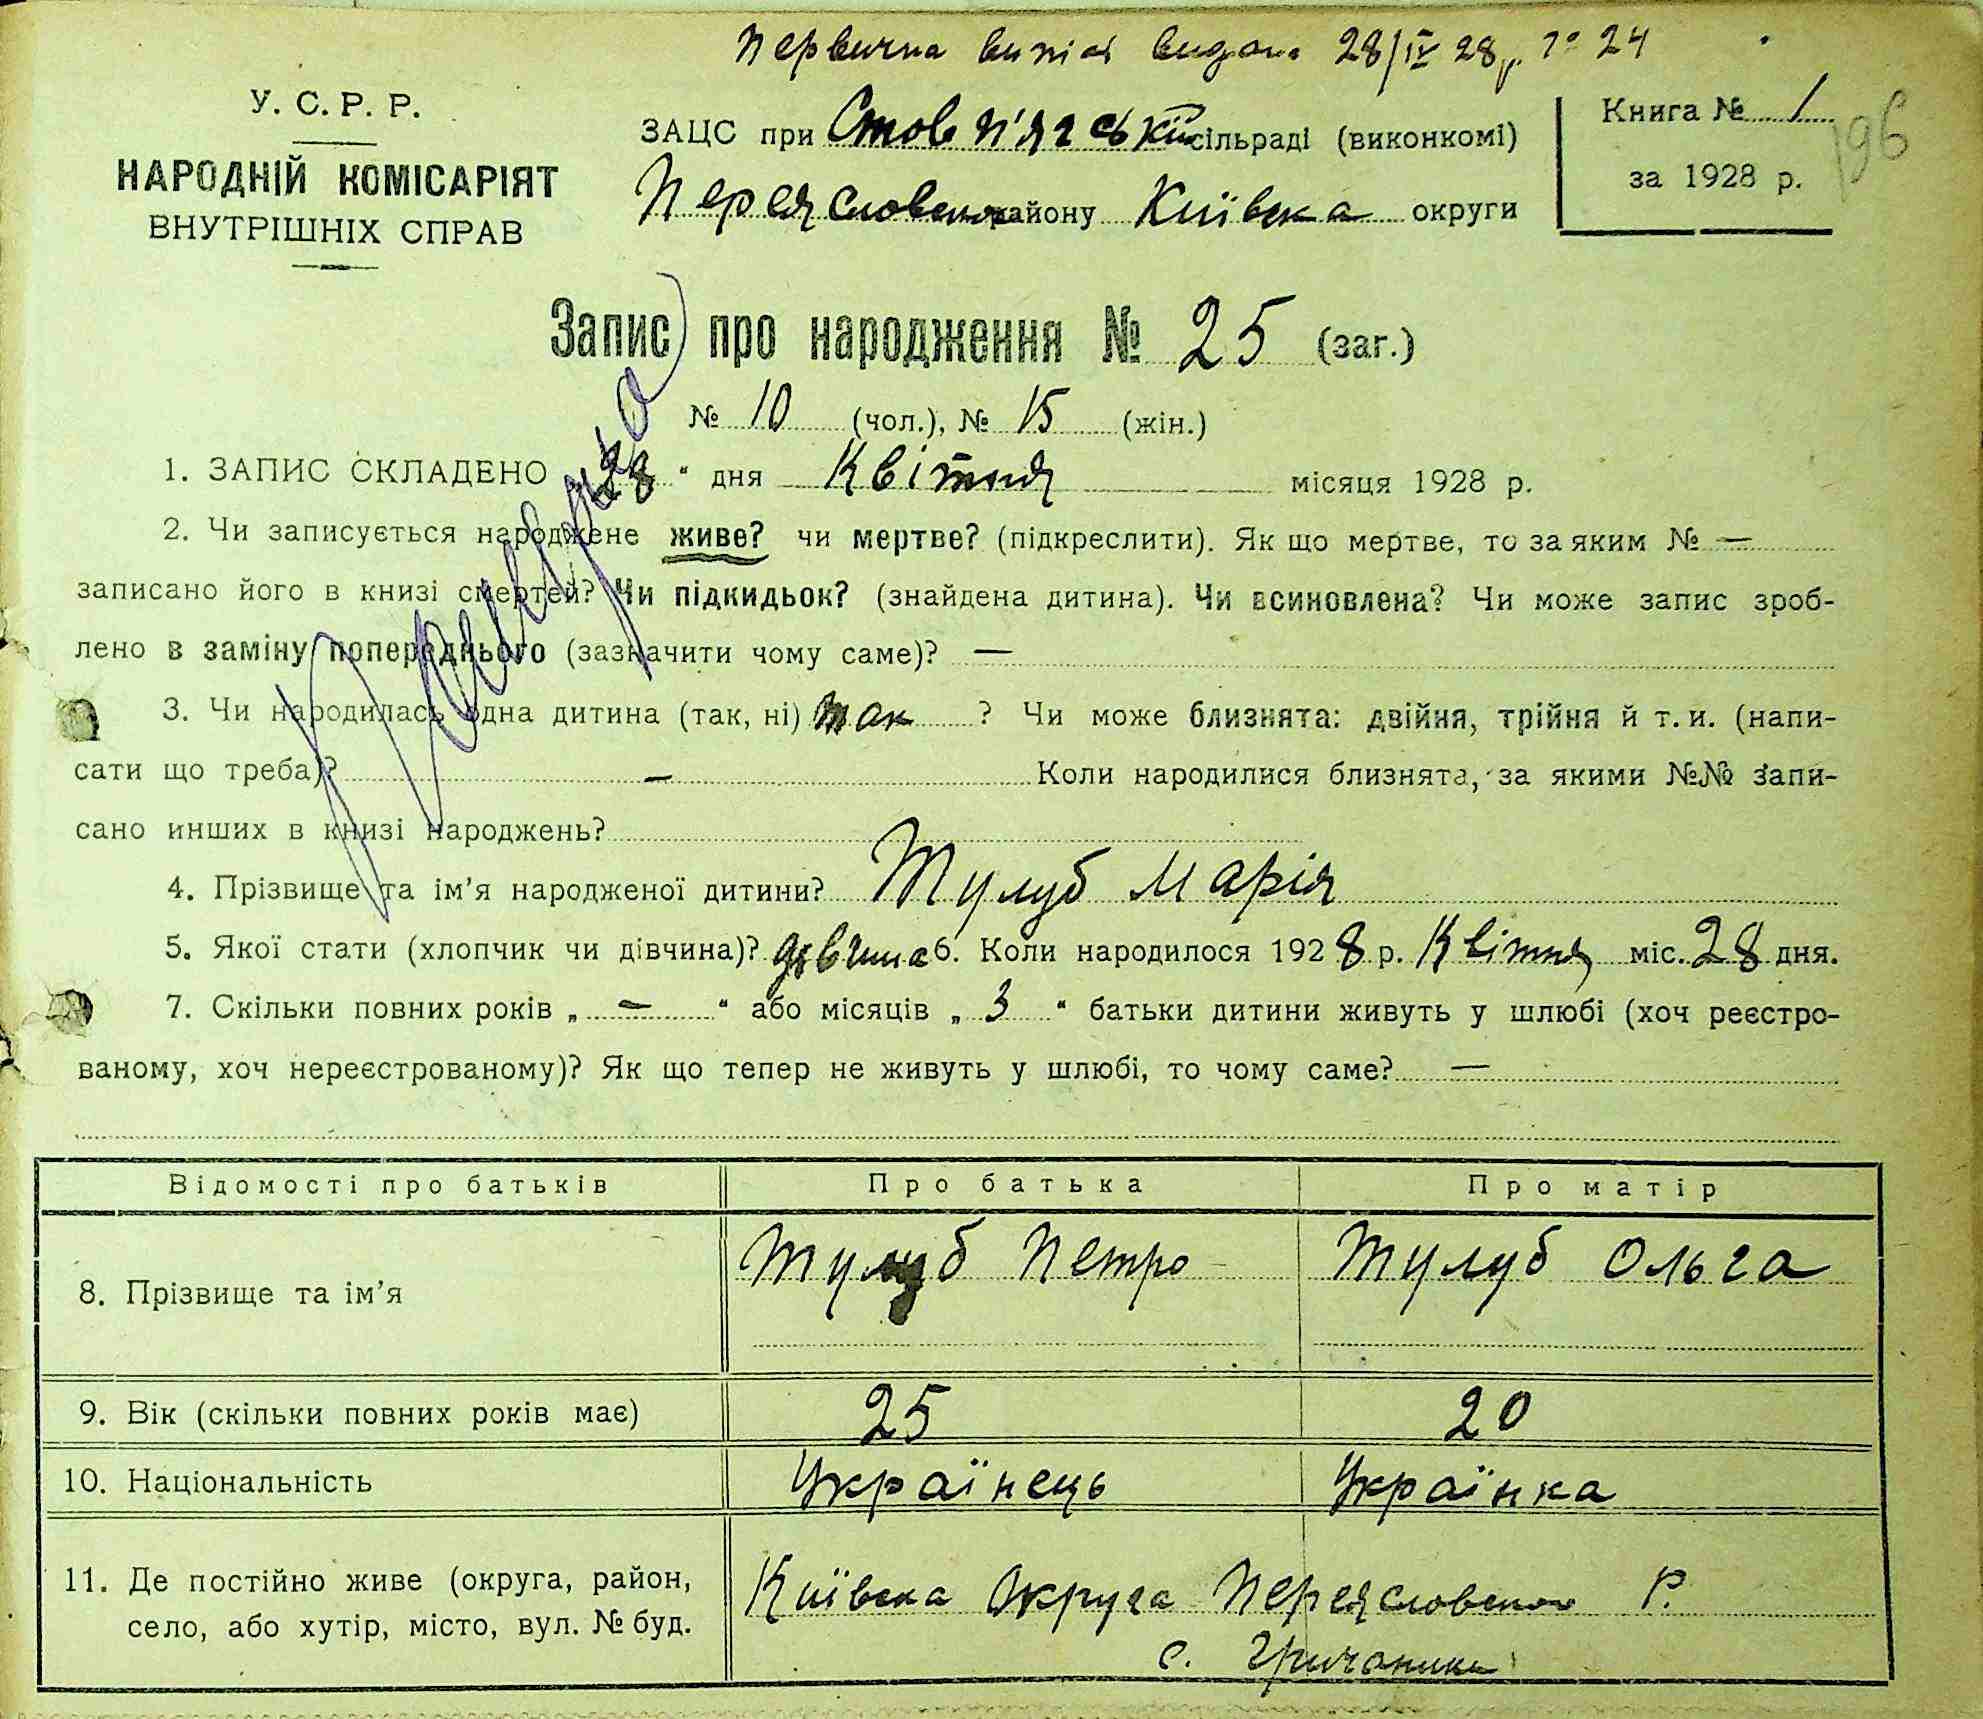 Первична випісь видана 28/IV 28 р. № 24
У. С. Р. Р.
НАРОДНІЙ КОМІСАРІЯТ
ВНУТРІШНІХ СПРАВ
ЗАЦС при Стовп'ягській сільраді (виконкомі)
Переясловського району Київська округи
Книга № 1
за 1928 р.
196
Запис про народження № 25 (заг.)
№ 10 (чол.), № 15 (жін.)
1. ЗАПИС СКЛАДЕНО 28 " дня Квітня місяця 1928 р.
2. Чи записується народжене живе? чи мертве? (підкреслити). Як що мертве, то за яким № —
записано його в книзі смертей? Чи підкидьок? (знайдена дитина). Чи всиновлена? Чи може запис зроб-
лено в заміну попереднього (зазначити чому саме)? —
3. Чи народилась одна дитина (так, ні) так ? Чи може близнята: двійня, трійня й т. и. (напи-
сати що треба)? — Коли народилися близнята, за якими №№ запи-
сано инших в книзі народжень?
4. Прізвище та ім'я народженої дитини? Тулуб Марія
5. Якої стати (хлопчик чи дівчина)? дівчина 6. Коли народилося 1928 р. Квітня міс. 28 дня.
7. Скільки повних років „ — " або місяців „ 3 " батьки дитини живуть у шлюбі (хоч реєстро-
ваному, хоч нереєстрованому)? Як що тепер не живуть у шлюбі, то чому саме? —
Відомості про батьків Про батька Про матір
8. Прізвище та ім'я Тулуб Петро Тулуб Ольга
9. Вік (скільки повних років має) 25 20
10. Національність Українець Українка
11. Де постійно живе (округа, район, Київска Округа Переясловського Р.
село, або хутір, місто, вул. № буд. с. Гричаники